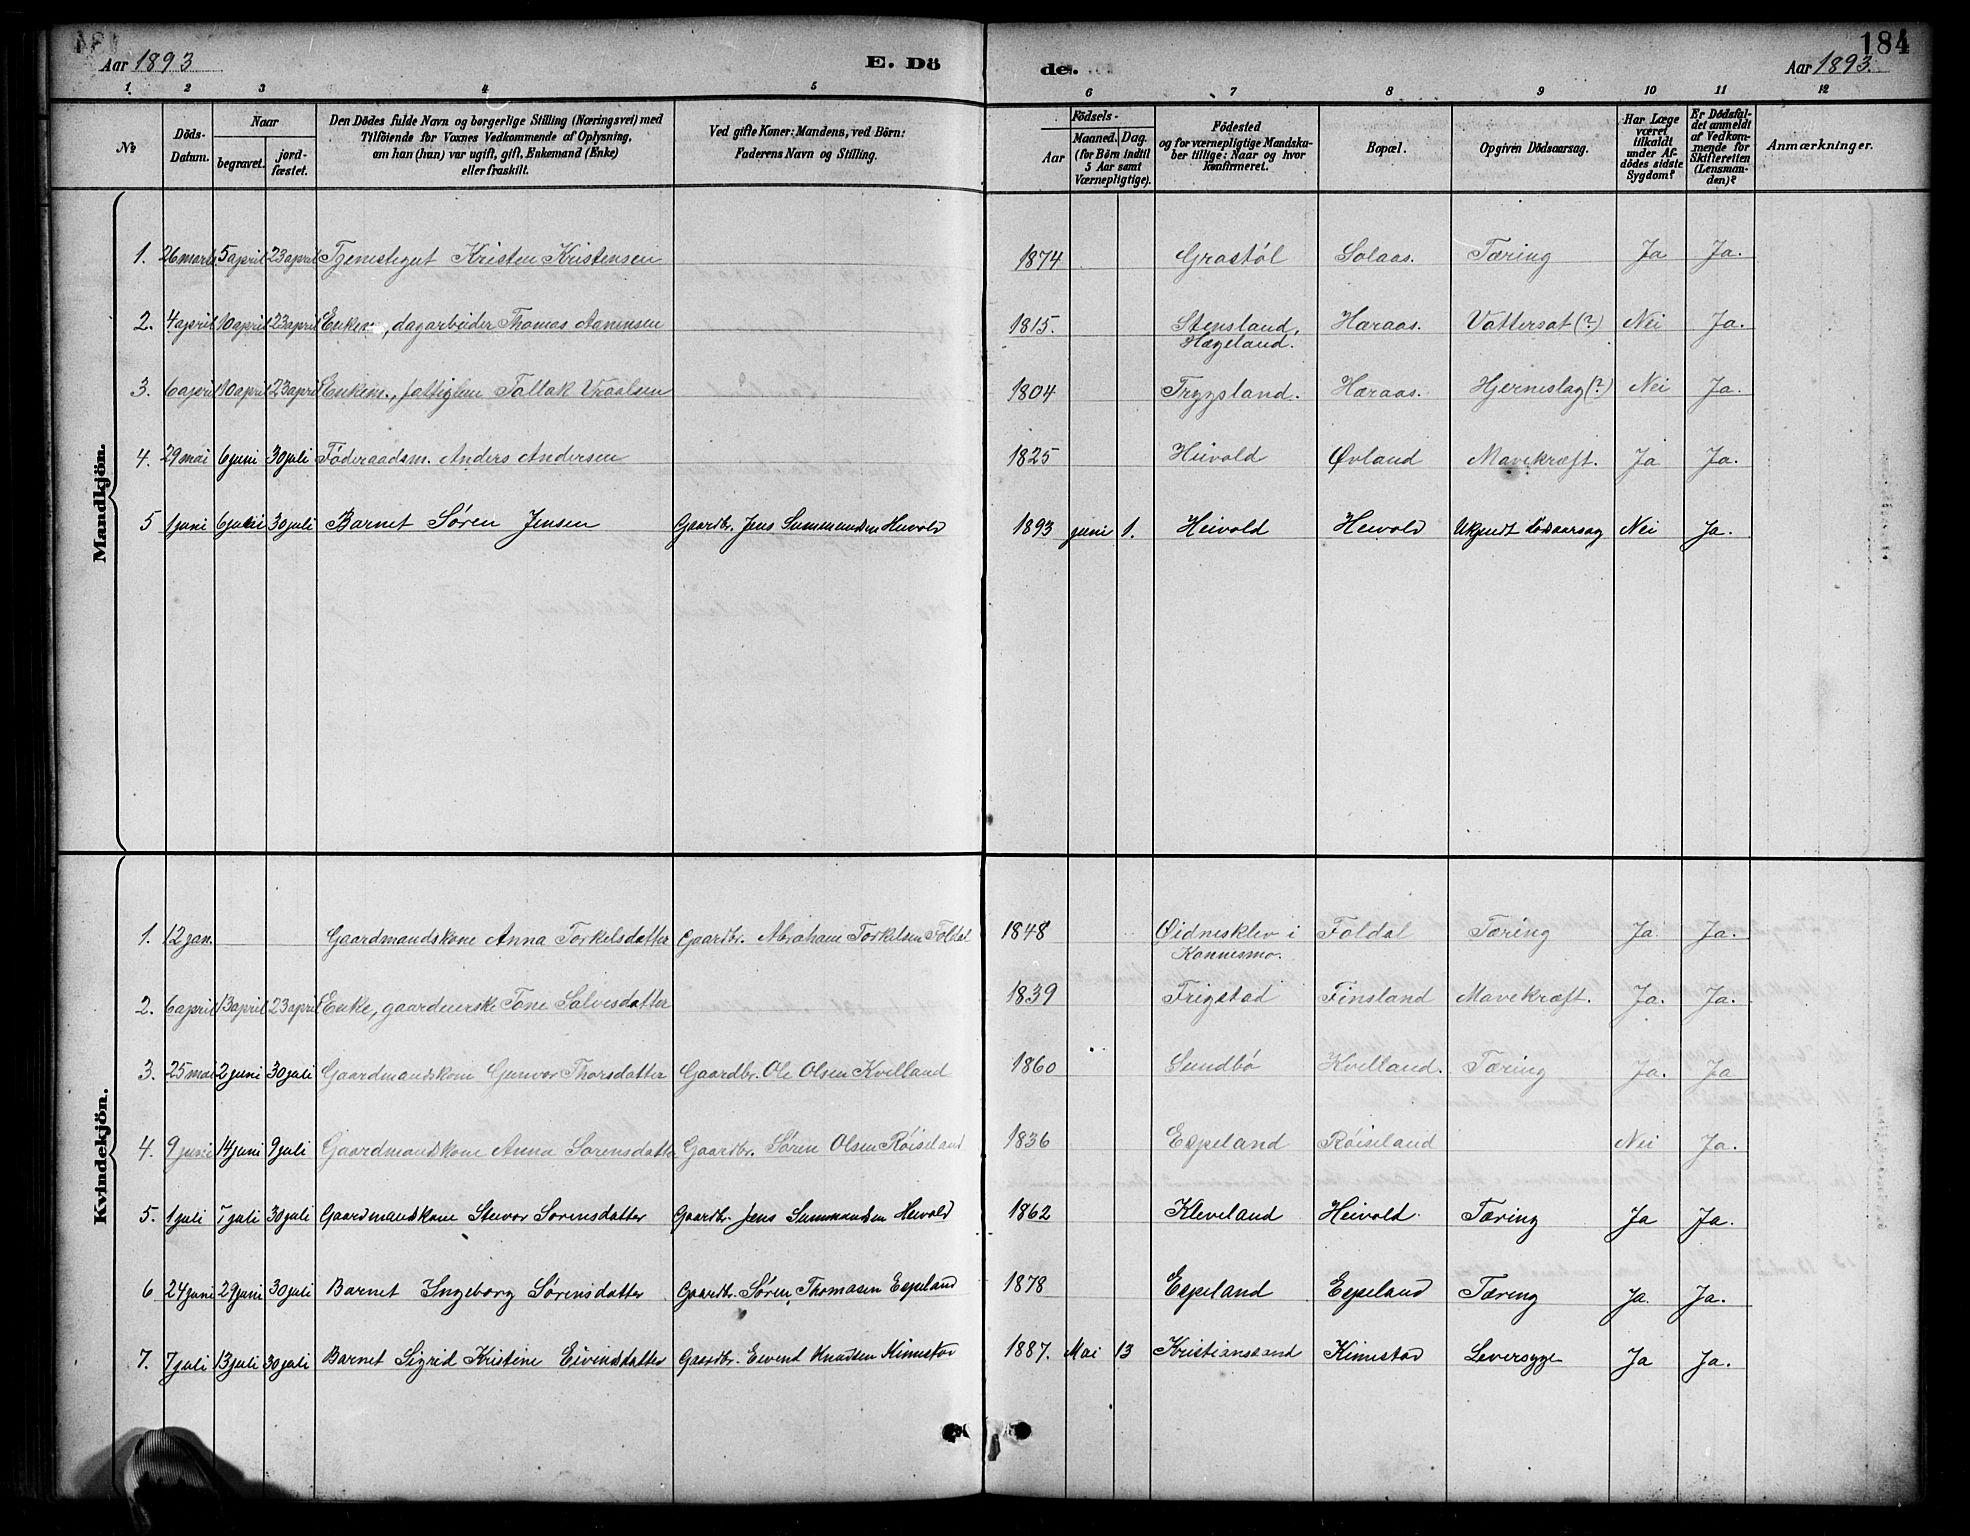 184
Aar 1893
E. Dö
de.
Aar 1893.
1 2 3 4 5 6 7 8 9 10 11 12
No
Döds-Datum.
Naar
begravet.
jord-fæstet.
Den Dödes fulde Navn og borgerlige Stilling (Næringsvei) med
Tilföiende for Voxnes Vedkommende af Oplysning,
om han (hun) var ugift, gift, Enkemand (Enke)
eller fraskilt.
Ved gifte Koner: Mandens, ved Börn:
Faderens Navn og Stilling.
Födsels-
Aar
Maaned.
Dag.
(for Börn indtil
5 Aar samt
Værnepligtige).
Födested
og for værnepligtige Mandska-
ber tillige: Naar og hvor
konfirmeret.
Bopæl.
Opgiven Dödsaarsag.
Har Læge
været
tilkaldt
under Af-
dödes sidste
Sygdom?
Er Dödsfal-
det anmeldt
af Vedkom-
mende for
Skifteretten
(Lensman-
den)?
Anmærkninger.
Mandkjön.
1. 26 marts 5 april 23 april Tjenestegut Kristen Kristensen 1874 Grostøl Solaas. Tæring Ja Ja.
2. 4 april 10 april 23 april Enkem., dagarbeider Thomas Aanensen 1815. Stensland, Hægeland. Haraas. Vattersot (?) Nei Ja.
3. 6 april 10 april 23 april Enkem., fattiglem Tallak Vraalsen 1804 Trygsland. Haraas. Hjerneslag (?) Nei Ja.
4. 29 mai 6 juni 30 juli Föderaadsm. Anders Andersen 1825 Heivold Øvland Mavekræft. Ja Ja.
5 1 juni 6 juli 30 juli Barnet Søren Jensen Gaardbr. Jens Summundsen Heivold 1893 juni 1. Heivold Heivold Ukjendt Dødsaarsag Nei Ja.
Kvindekjön.
1. 12 jan. Gaardmandskone Anna Torkelsdatter Gaardbr. Abraham Torkelsen Foldal 1848 Øidnesklev i Konnesmo. Foldal Tæring Ja Ja.
2. 6 april 13 april 23 april Enke, gaardeierske Tone Salvesdatter 1839 Frigstad Finsland Mavekræft. Ja. Ja.
3. 25 mai 2 juni 30 juli Gaardmandskone Gunvor Thorsdatter Gaardbr. Ole Olsen Kvelland 1860 Sundbø Kvelland. Tæring Ja. Ja
4. 9 juni 14 juni 9 juli Gaardmandskone Anna Sørensdatter Gaardbr. Søren Olsen Røiseland 1836 Espeland Røiseland Nei Ja.
5. 1 juli 7 juli 30 juli Gaardmandskone Stevor Sørensdatter Gaardbr. Jens Summundsen Heivold 1862 Kleveland Heivold. Tæring Ja Ja.
6 24 juni 29 juni 30 juli Barnet Ingeborg Sørensdatter Gaardbr. Søren Thomasen Espeland 1878 Espeland Espeland Tæring Ja. Ja.
7. 7 juli 13 juli 30 juli Barnet Sigrid Kristine Eivindsdatter Gaardbr. Eivend Knudsen Kimestad 1887. Mai 13 Kristianssand Kimestad Leversyge Ja Ja.